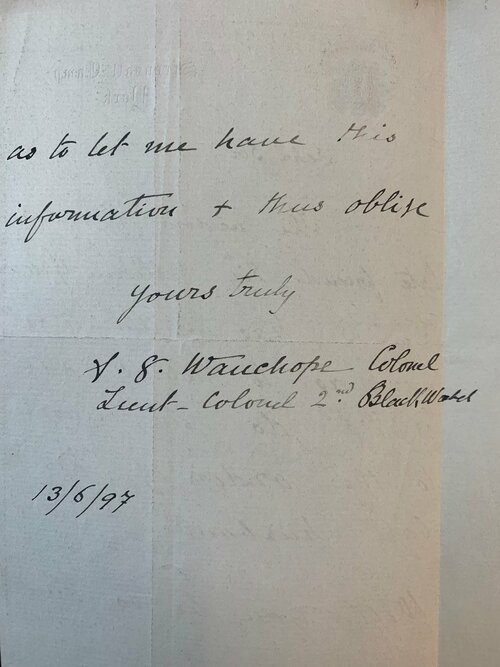 as to let me have this
information + thus oblige
yours truly
A. G. Wauchope Colonel
Lieut-Colonel 2nd Black Watch
13/6/97